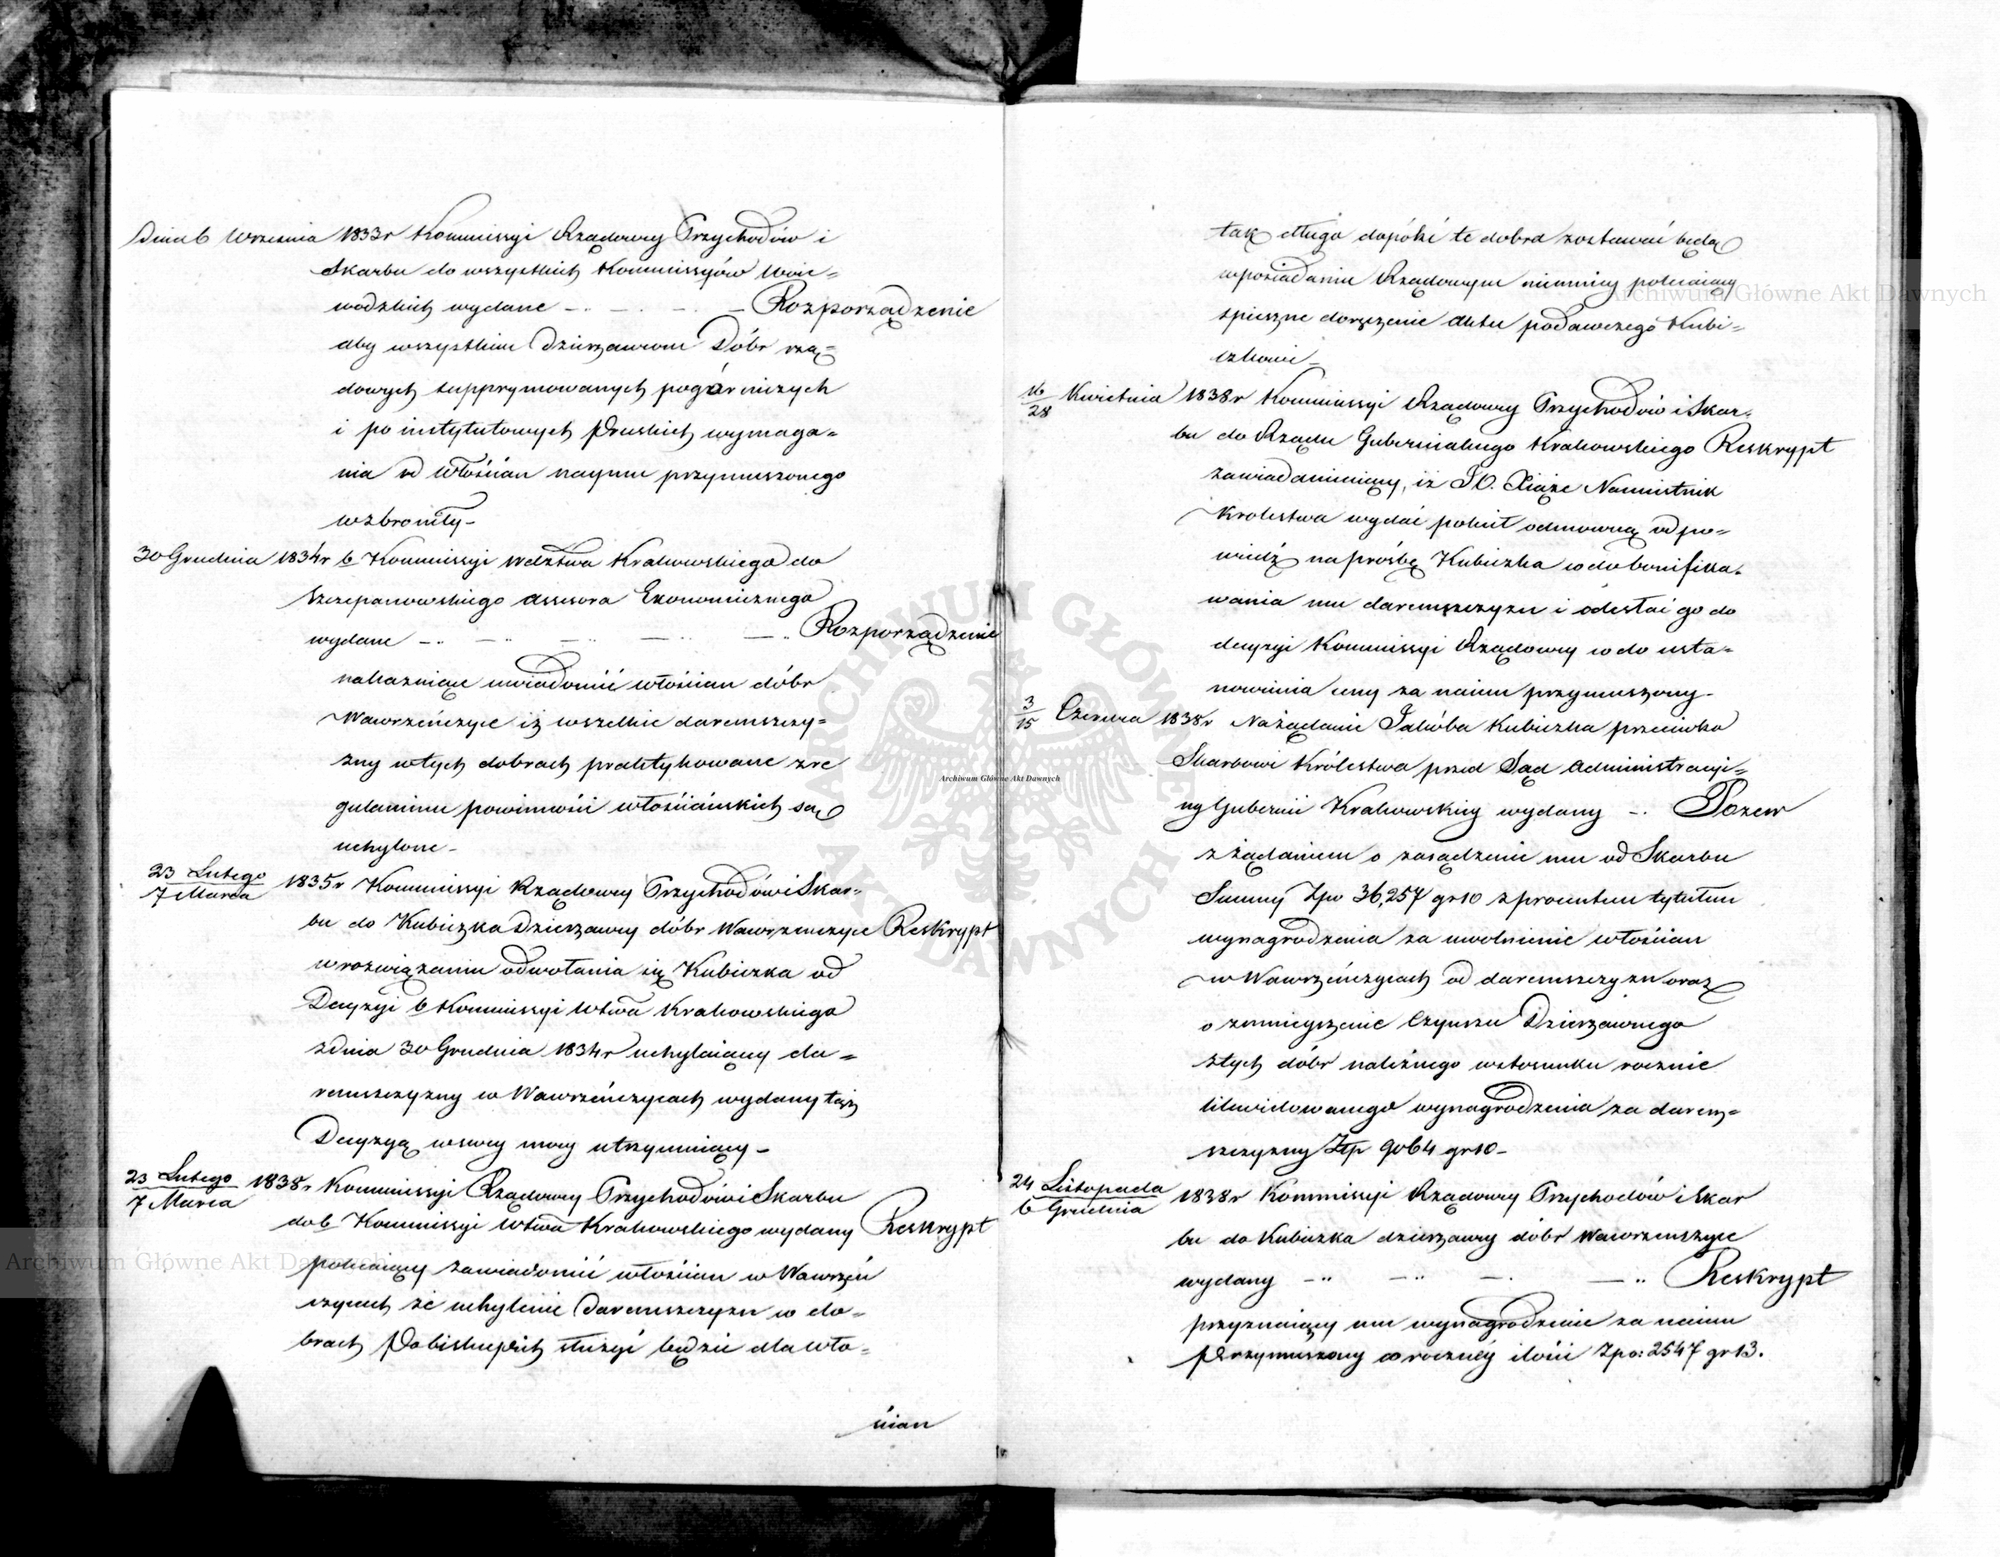 Dnia 6 Września 1833r Kommissyi Rządowey Przychodów i
Skarbu do wszystkich Kommissyów Woie=
wodzkich wydane — Rozporządzenie
aby wszystkim Dzierzawcom Dóbr rzą=
dowych supprymowanych pogórniczych
i po instytutowych Pruskich wymaga=
nia od Włościan naymu przymuszonego
wzbroniły —
30 Grudnia 1834r b Kommissyi Wdztwa Krakowskiego do
Szczepanowskiego Assesora Ekonomicznego
wydane — Rozporządzenie
nakazuiące uwiadomić włościan dóbr
Wawrzeńczyce iż wszelkie daremszczy=
zny w tych dobrach praktykowane zre
gulaminu powinności włościańskich są
uchylone —
23 Lutego
7 Marca
1835r Kommissyi Rządowey Przychodów i Skar=
bu do Kubiczka Dzierzawcy dóbr Wawrzenczyce Reskrypt
w rozwiązaniu odwołania się Kubiczka od
Decyzyi b Kommissyi Wtwa Krakowskiego
z dnia 30 Grudnia 1834r uchylaiący da=
remszczyzny w Wawrzeńczycach wydany tąż
Decyzyą w swey mocy utrzymuiący —
23 Lutego
7 Marca
1838r Kommissyi Rządowey Przychodów i Skarbu
do b Kommissyi Wtwa Krakowskiego wydany Reskrypt
polecaiący zawiadomić włościan w Wawrzeń
czycach że uchylenie Daremszczyzn w do=
brach Pobiskupich służyć będzie dla wło=
ścian
tak długo dopóki te dobra zostawać będą
w posiadaniu Rządowym niemniey polecaiący
spieszne doręczenie Aktu podawczego Kubi=
czkowi —
16
28
Kwietnia 1838r Kommissyi Rządowey Przychodów i Skar=
bu do Rządu Gubernialnego Krakowskiego Reskrypt
zawiadamiaiący, iż JO. Xiąże Namiestnik
Krolestwa wydać polecił odmowną odpo=
wiedź na prośbę Kubiczka wdo bonifika=
wania mu daremszczyzn i odesłać go do
decyzyi Kommissyi Rządowey wdo usta=
nowienia ceny za naiem przymuszony —
3
15
Czerwca 1838r Na żądanie Jakóba Kubiczka przeciwko
Skarbowi Królestwa przed Sąd Administracyi=
ny Gubernii Krakowskiey wydany — Pozew
z żądaniem o zasądzenie mu od Skarbu
Summy Zpo 36,257 gr 10 z procentem tytułem
wynagrodzenia za uwolnienie włościan
w Wawrzeńczycach od daremszczyzn oraz
o zmnieyszenie Czynszu Dzierzawnego
z tych dóbr należnego w stosunku rocznie
likwidowanego wynagrodzenia za darem=
szczyzny Złp 9064 gr 10 —
24 Listopada
6 Grudnia
1838r Kommissyi Rządowey Przychodów i Skar
bu do Kubiczka dzierzawcy dóbr Wawrzenczyce
wydany — Reskrypt
przyznaiący mu wynagrodzenie za naiem
Przymuszony w roczney ilości Zpo: 2547 gr 13.
Archiwum Główne Akt Dawnych
Archiwum Główne Akt Dawnych
Archiwum Główne Akt Dawnych
ARCHIWUM GŁÓWNE AKT DAWNYCH